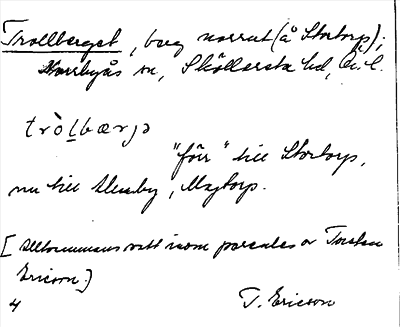 Trollberget, berg norrut (å Stortorp);
Norrbyås sn, Sköllersta hd, Ör. l.
trò̀l̠bærjə
"förr" till Stortorp,
nu till Ulvsby, Mytorp.
[Utkommans vått inom parentes av Torsten
Ericson.]
4 T. Ericson